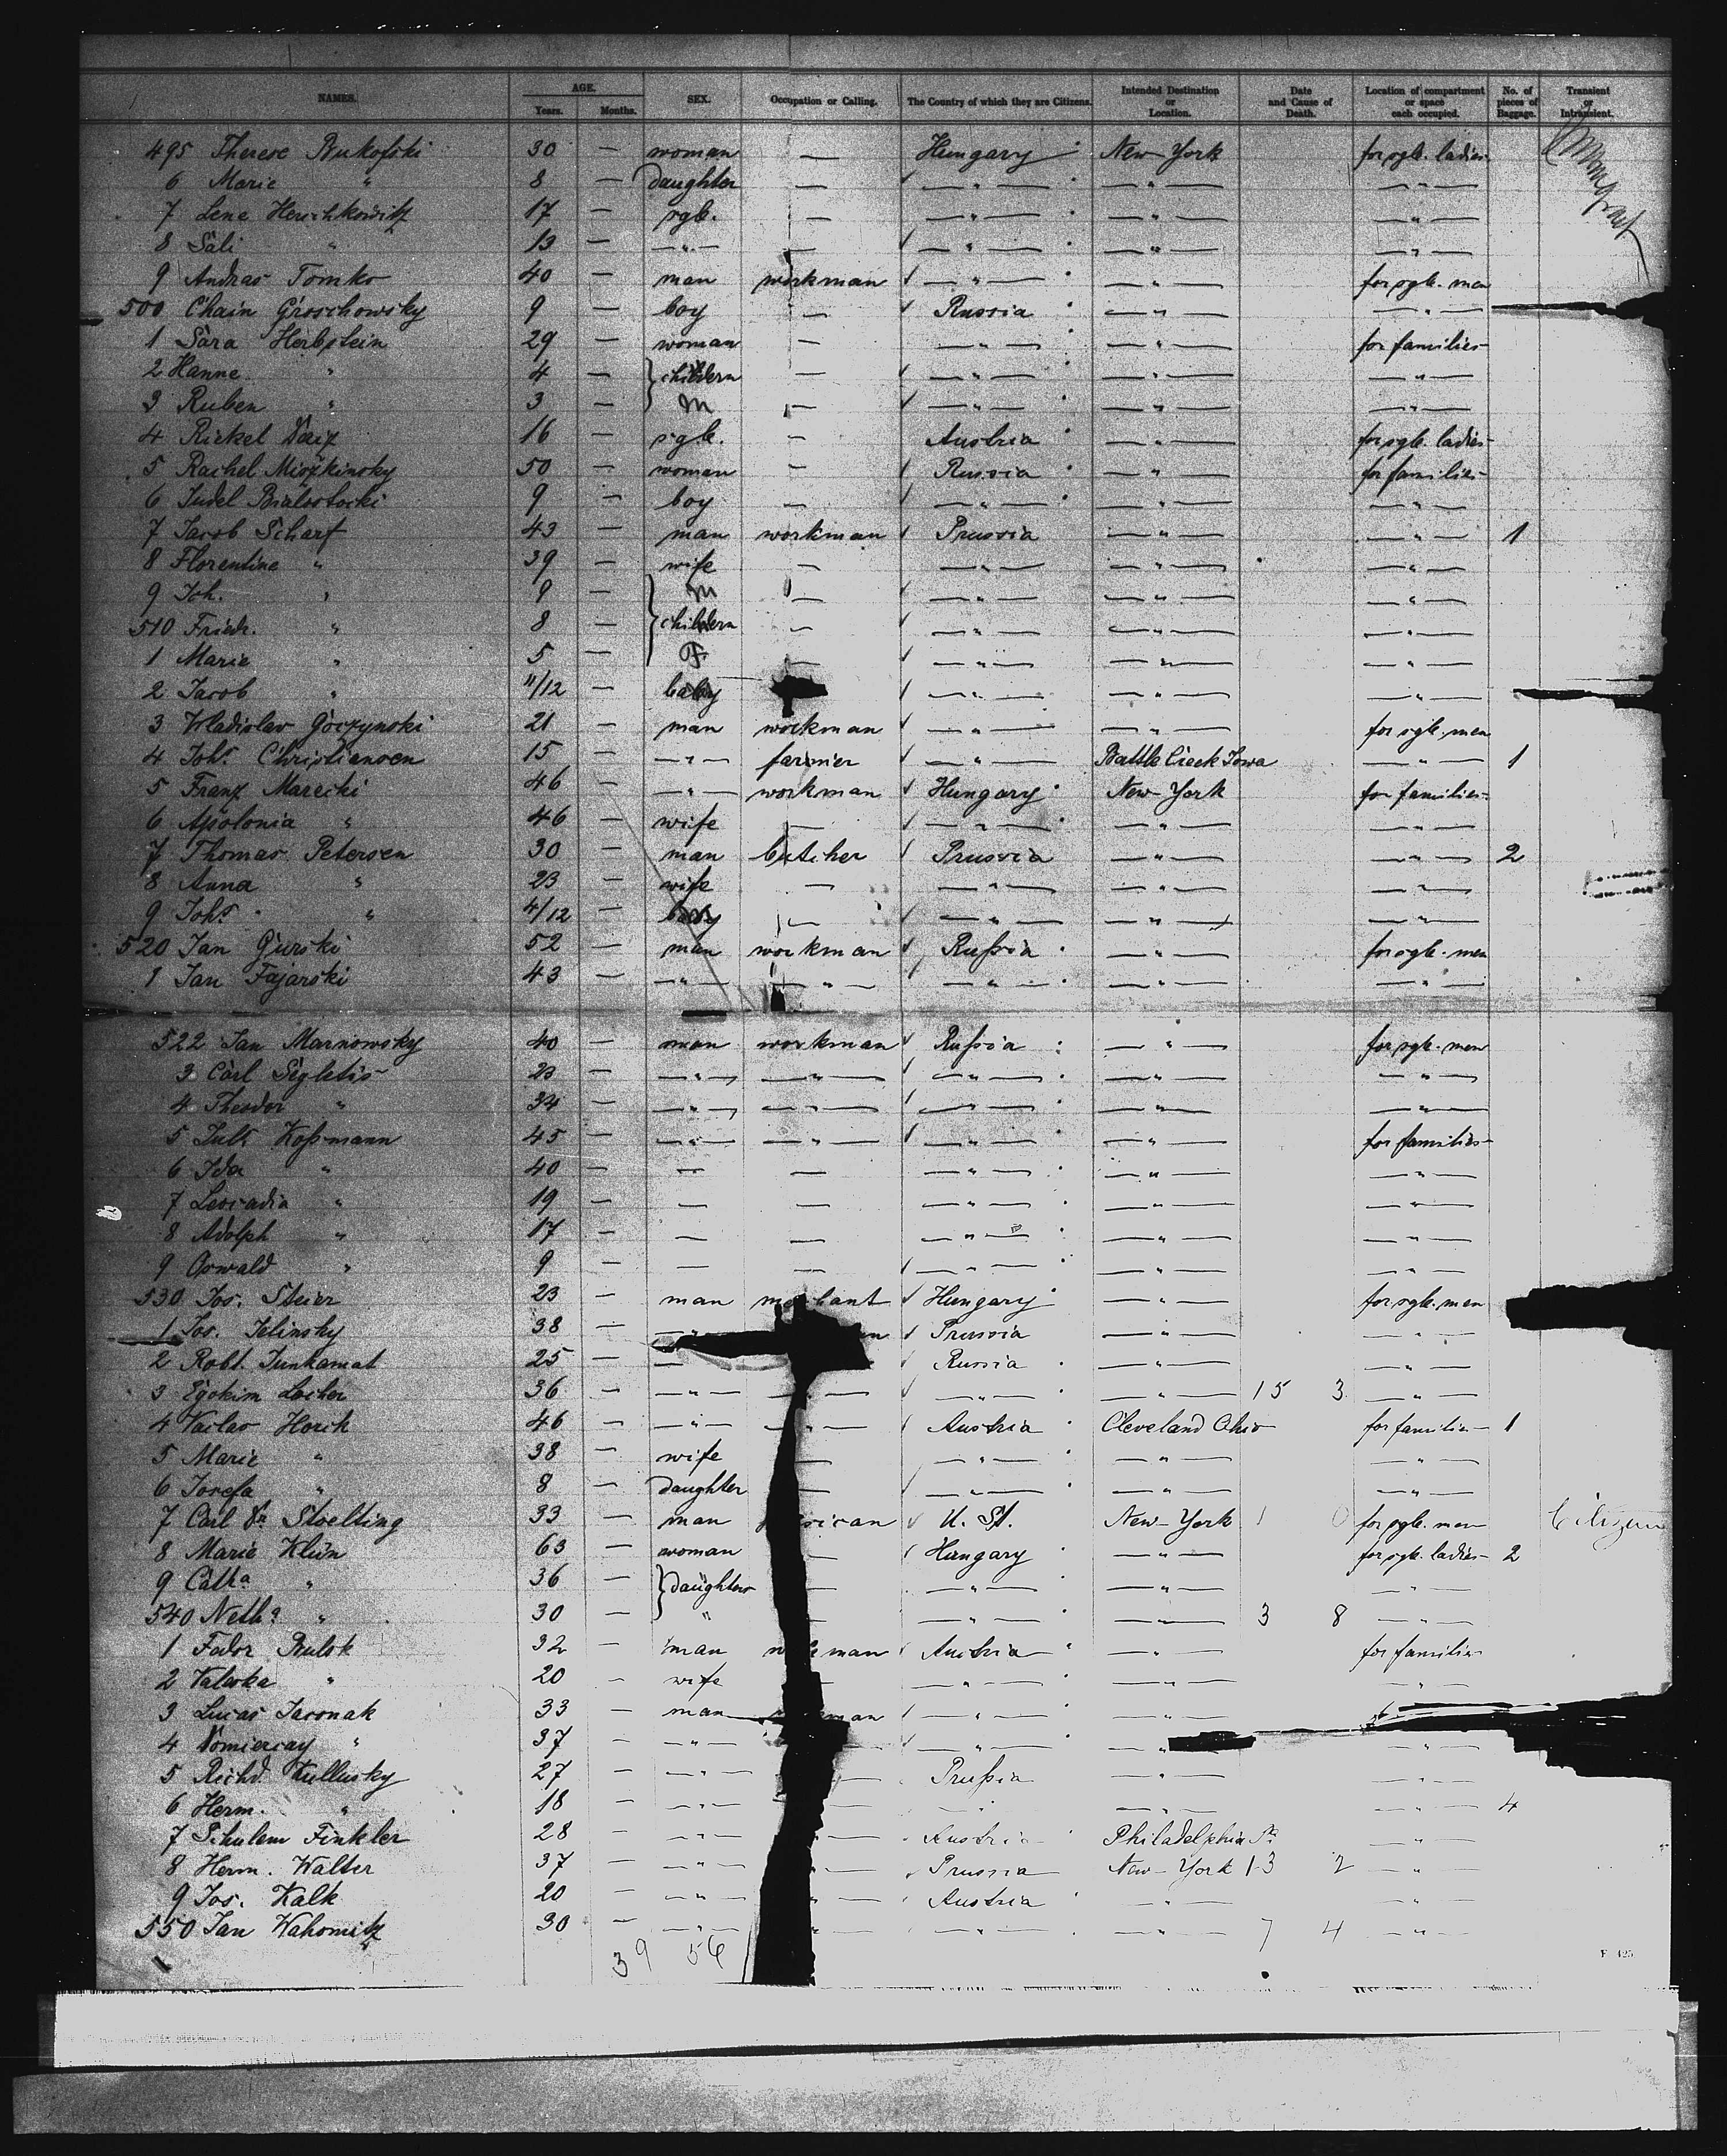 NAMES. AGE. Years. Months. SEX. Occupation or Calling. The Country of which they are Citizens. Intended Destination or Location. Date and Cause of Death. Location of compartment or space each occupied. No. of pieces of Baggage. Transient or Intransient.
495 Therese Bukofski 30 — woman — Hungary New-York for sgle. ladies
6 Marie " 8 — daughter — — " — — " — — " —
7 Lene Herschkowitz 17 — sgle. — — " — — " — — " —
8 Sali " 13 — — " — — — " — — " — — " —
9 Andras Tomko 40 — man workman — " — — " — for sgle. men
500 Chain Groschowsky 9 — boy — Russia — " — — " —
1 Sara Herbstein 29 — woman — — " — — " — for families
2 Hanne " 4 — childern — — " — — " — — " —
3 Ruben " 3 — M — — " — — " — — " —
4 Rickel 16 — sgle. — Austria — " — for sgle. ladies
5 Rachel Miozkinsky 50 — woman — Russia — " — for families
6 Judel Bialostocki 9 — boy — — " — — " — — " —
7 Jacob Scharf 43 — man workman Prussia — " — — " — 1
8 Florentine " 39 — wife — — " — — " — — " —
9 Joh. " 9 — M — — " — — " — — " —
510 Friedr. " 8 — childern — — " — — " — — " —
1 Marie " 5 — F — — " — — " — — " —
2 Jacob " 11/12 — baby — " — — " — — " —
3 Wladislav Goczynski 21 — man workman — " — — " — for sgle. men
4 Johs. Christiansen 15 — — " — farmer — " — Battle Creek Iowa — " — 1
5 Franz Marecki 46 — — " — workman Hungary New-York for families
6 Apolonia " 46 — wife — — " — — " — — " —
7 Thomas Petersen 30 — man butcher Prussia — " — — " — 2
8 Anna " 23 — wife — — " — — " — — " —
9 Johs. " 4/12 — — — " — — " — — " —
520 Jan Gurski 52 — man workman Rußia — " — for sgle. men
1 Jan Fajarski 43 — — " — — " — — " — — " — — " —
522 Jan Marnowsky 40 — man workman Rußia — " — for sgle. men
3 Carl Sigletis 23 — — " — — " — — " — — " — — " —
4 Theodor " 34 — — " — — " — — " — — " — — " —
5 Koßmann 45 — — " — — " — — " — — " — for families
6 Ida " 40 — — — — " — — " — — " —
7 Leocadia " 19 — — — — " — — " — — " —
8 Adolph " 17 — — — — " — — " — — " —
9 Oswald " 9 — — — — " — — " — — " —
530 Jos. Steier 23 — man Hungary — " — for sgle. men
1 Jos. Jelinsky 38 — Prussia — " — — " —
2 Robt. Junkamat 25 — — Russia — " — — " —
3 Egokim Locher 36 — — " — — — " — — " — 15 3 — " —
4 Vaclav Horek 46 — — " — — Austria Cleveland Ohio for families 1
5 Marie " 38 — wife — — " — — " — — " —
6 Josefa " 8 — daughter — — " — — " — — " —
7 Carl Stoelting 33 — man U. St. New-York 1 0 for sgle. men Citizen
8 Marie Klein 63 — woman — Hungary — " — for sgle. ladies 2
9 Catha. " 36 — daughters — — " — — " — — " —
540 Netha. " 30 — " — — " — — " — 3 8 — " —
1 Fedor Bulsk 32 — man man Austria — " — for families
2 Valeska " 20 — wife — — " — — " — — " —
3 Lucas Jaronak 33 — man man — " — — " —
4 " 37 — — " — — — " — — " — — " —
5 Richd. Kullusky 27 — — " — — Prußia — " — — " —
6 Herm. " 18 — — " — — — " — — " — — " — 4
7 Schulem Finkler 28 — — " — — Austria Philadelphia Pa. — " —
8 Herm. Walter 37 — — " — — Prussia New-York 13 2 — " —
9 Jos. Kalk 20 — — " — — Austria — " — — " —
550 Jan Wahomitz 30 — — " — " — " — — " — 7 4 — " —
39 56